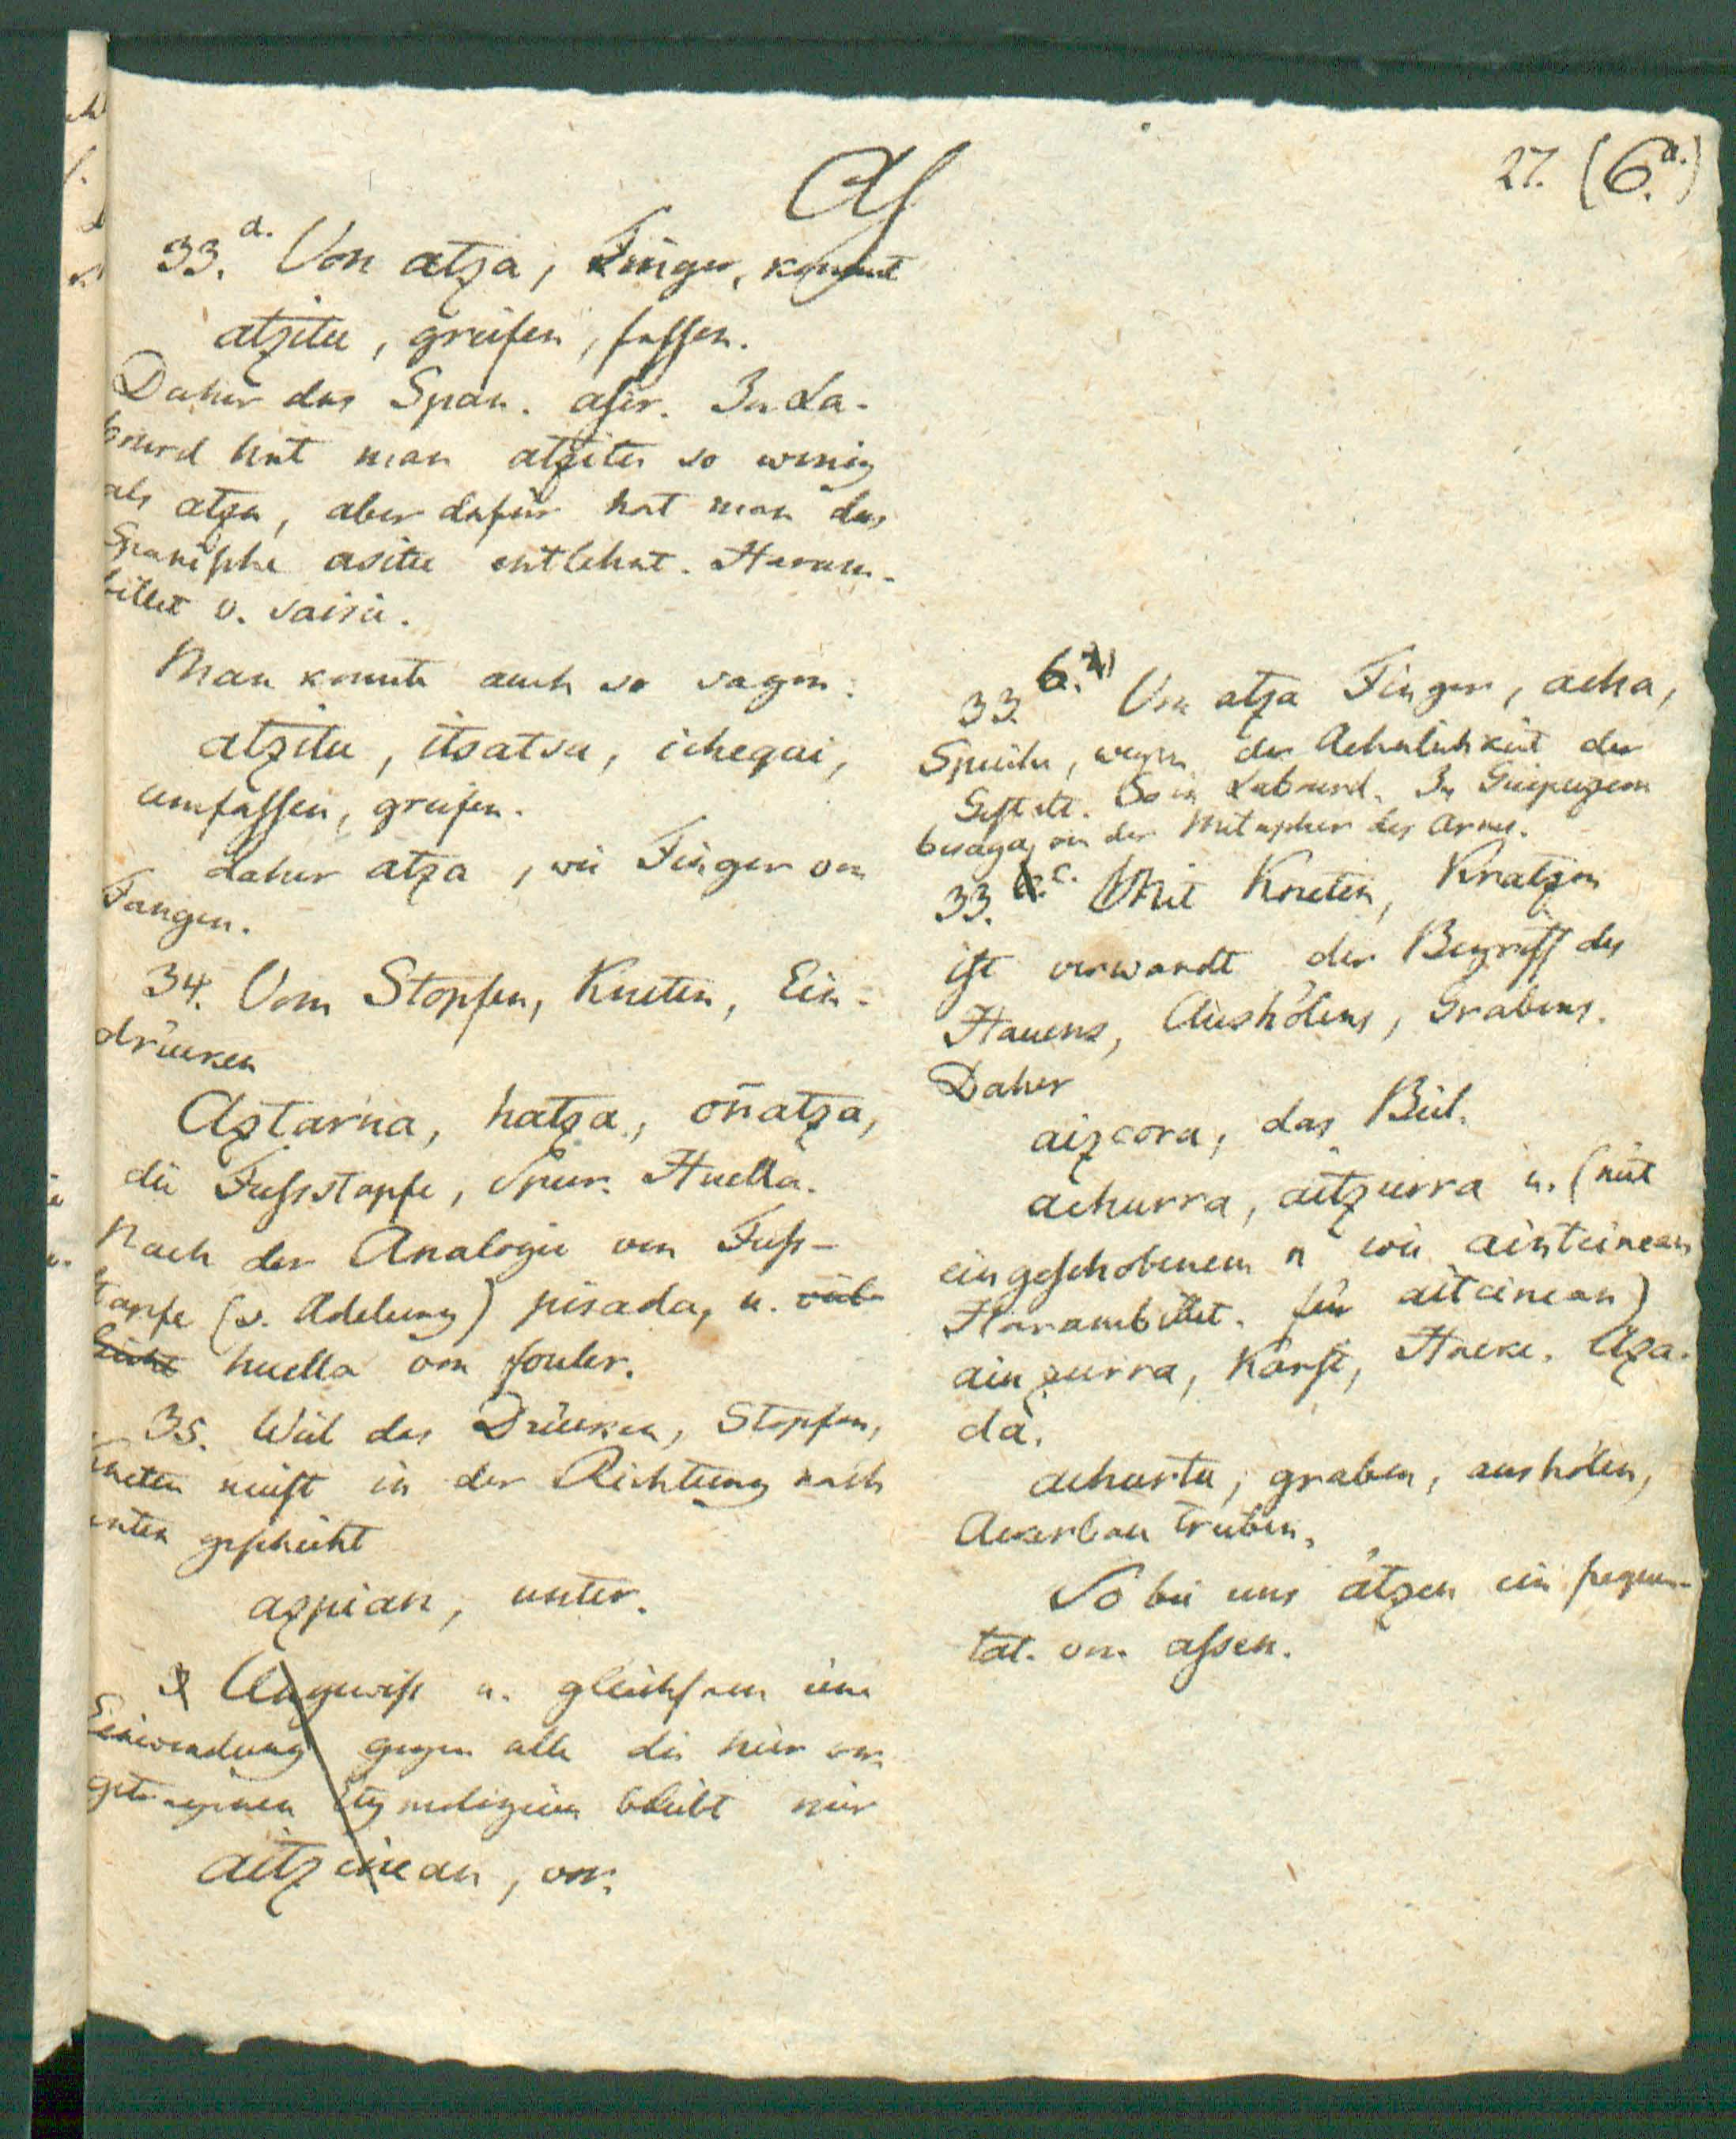 27. (6.a.)
As
33.a. Von atza, Finger, kommt
atzitu, greifen, fassen.
Daher das Span. asir. In La-
bourd hat man atzitu so wenig
als atza, aber dafür hat man das
Spanische asitu entlehnt. Haram-
billet v. saisir.
Man konnte auch so sagen:
atzitu, itsatsu, ichequi,
umfassen, greifen.
daher atza, wie Finger von
Fangen.
34. Vom Stopfen, Kneten, Ein-
drücken
Aztarna, hatza, oñatza,
die Fussstapfe, Spur. Huella.
Nach der Analogie von Fuss-
tapfe (v. Adelung) pisada, u. viel-
leicht huella von fouler.
35. Weil das Drücken, Stopfen,
Kneten meist in der Richtung nach
unten geschieht
azpian, unter.
Ungewiss u. gleichsam eine
Einwendung gegen alle die hier vor-
getragenen Etymologien bleibt mir
aitzinean, vor.
33. b. Von atza Finger, acha,
Speiche, wegen der Aehnlichkeit der
Gestalt. So in Labourd. In Guipuzcoa
besaga, von der Metapher des Arms.
33. c. Mit Kneten, Kratzen
ist verwandt der Begriff des
Hauens, Aushölens, Grabens.
Daher
aizcora, das Beil.
achurra, aitzurra u. (mit
eingeschobenem n wie aintcinean
Harambillet. für aitcinean)
ainzurra, Karst, Hacke. Aza-
da.
achurtu, graben, aushölen,
Ackerbau treiben.
So bei uns ätzen ein frequen-
tat. von assen.